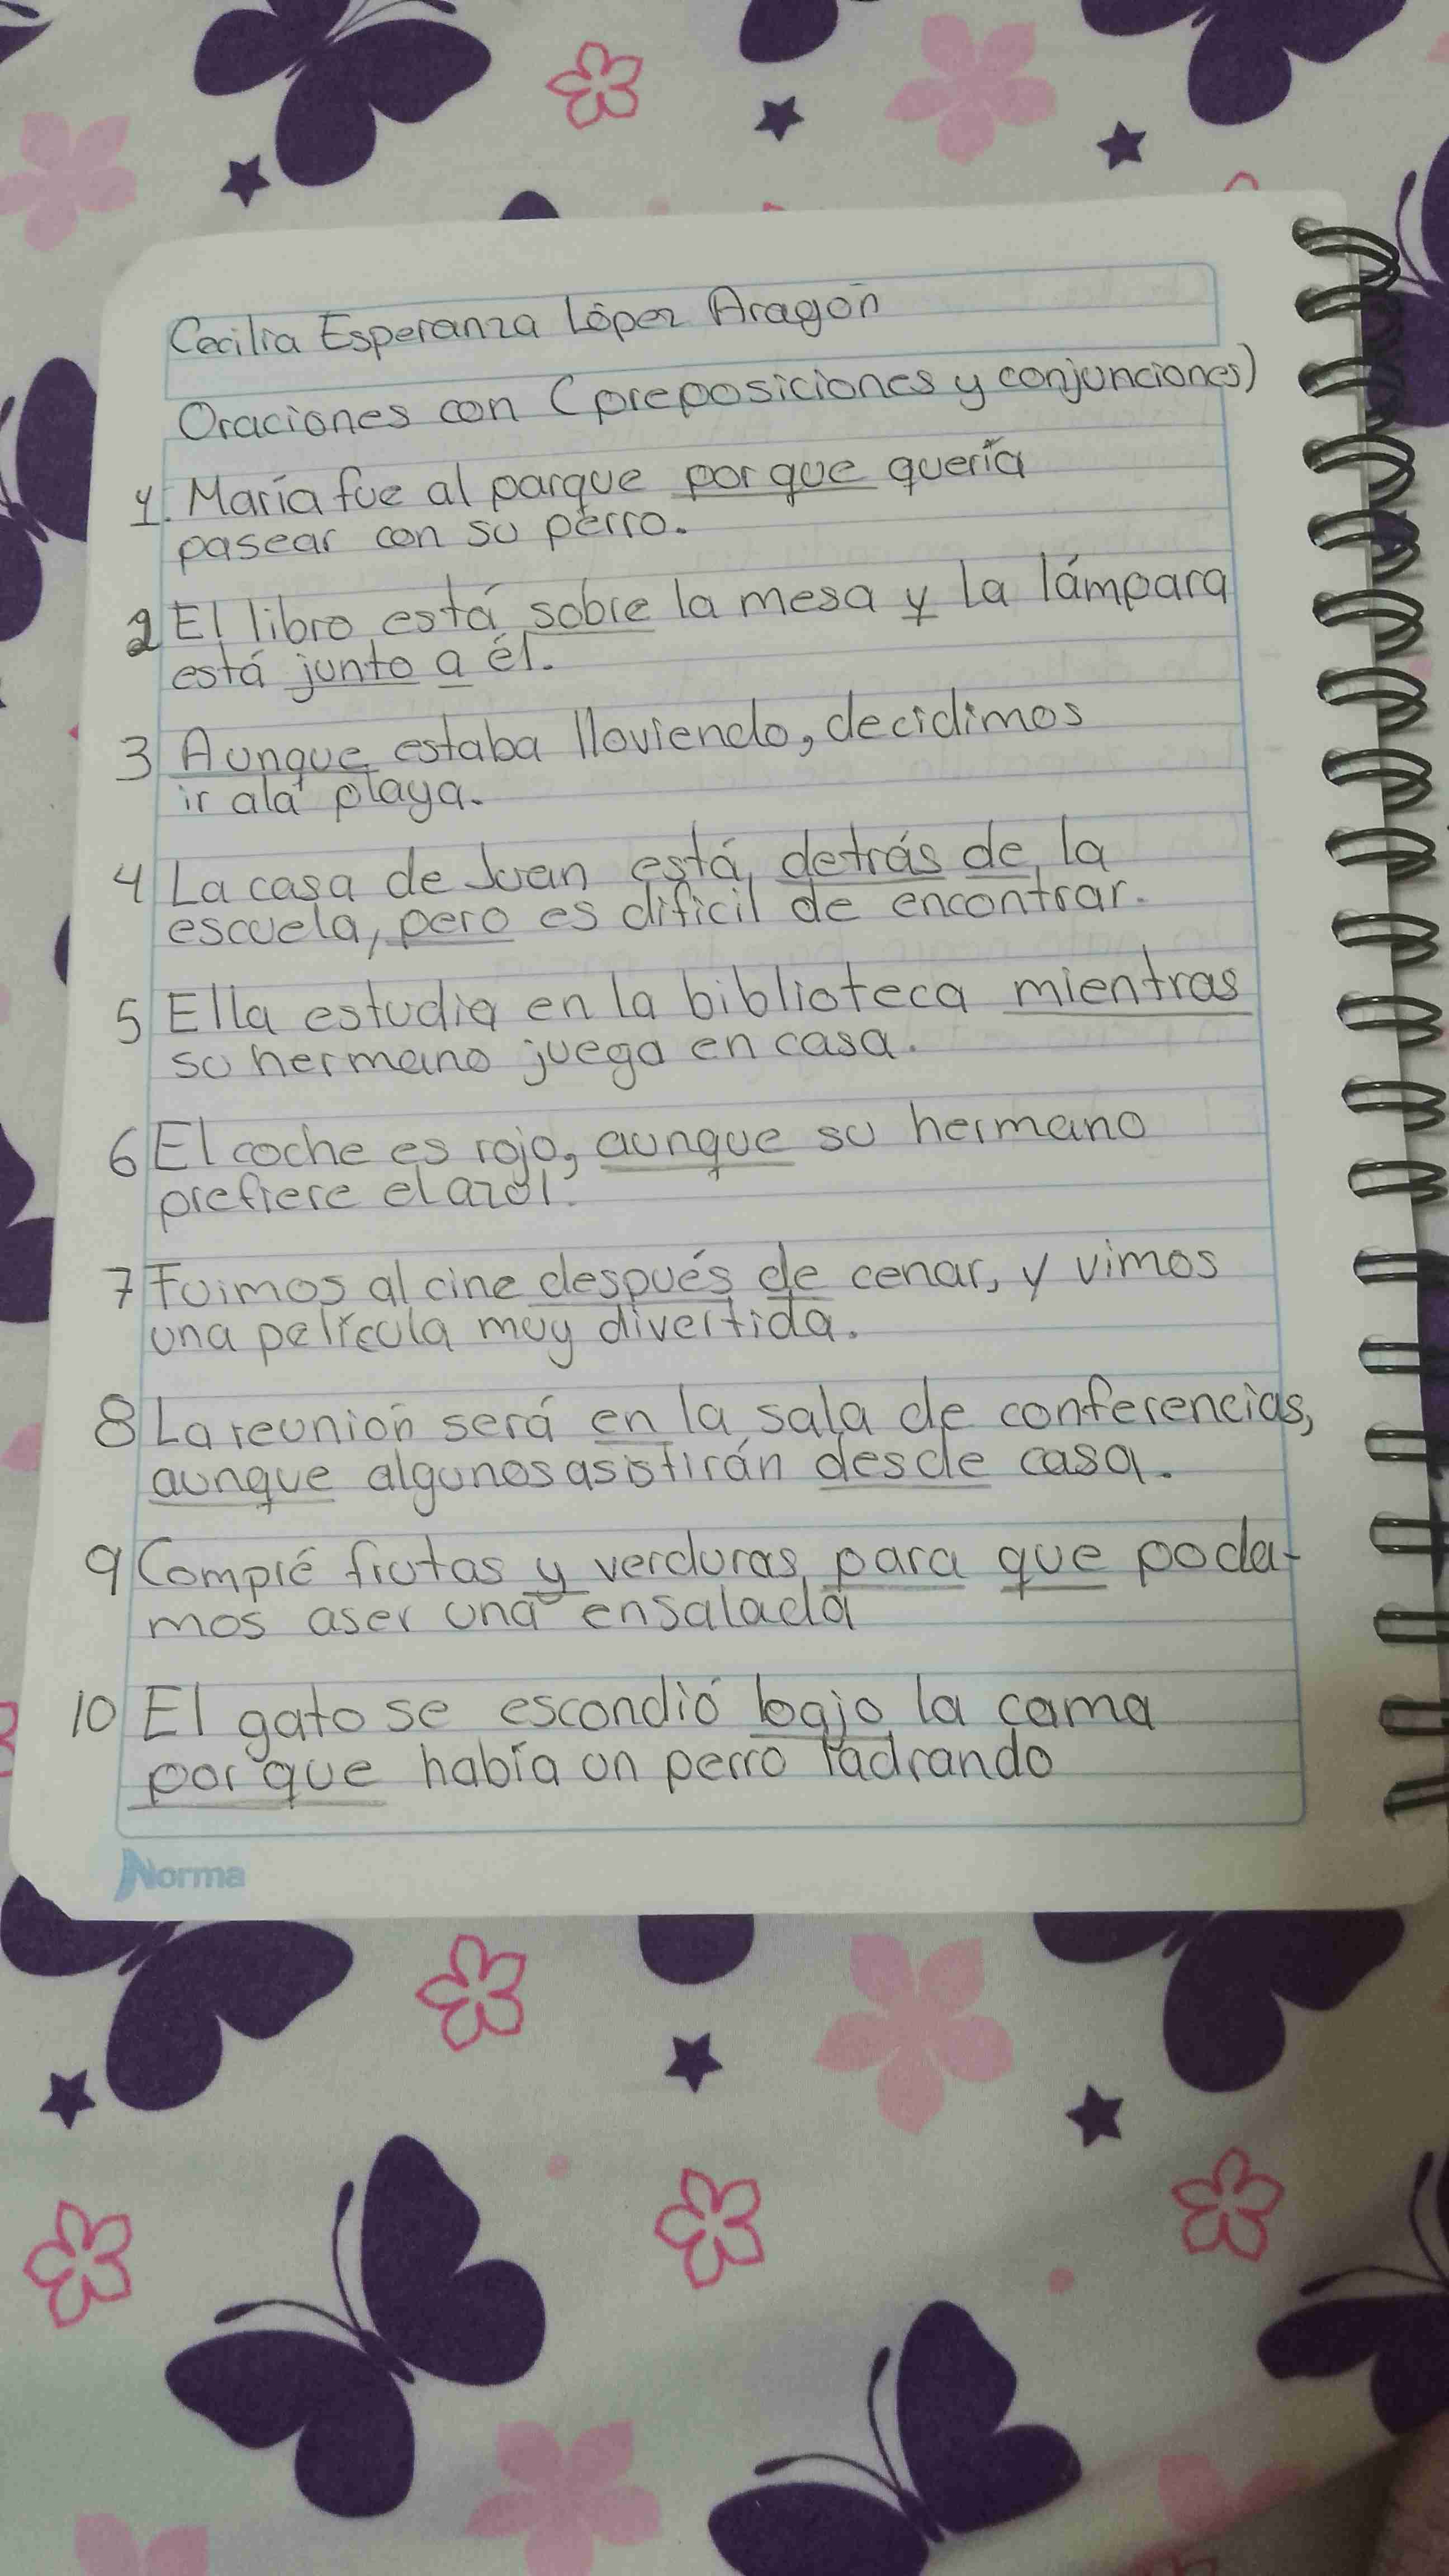 Cecilia Esperanza López Aragón
Oraciones con (preposiciones y conjunciones)
1. María fue al parque por que quería
pasear con su perro.
2 El libro está sobre la mesa y la lámpara
está junto a él.
3 Aunque estaba lloviendo, decidimos
ir ala playa.
4 La casa de Juan está detrás de la
escuela, pero es dificil de encontrar.
5 Ella estudia en la biblioteca mientras
su hermano juega en casa.
6 El coche es rojo, aunque su hermano
prefiere el azul.
7 Fuimos al cine después de cenar, y vimos
una película muy divertida.
8 La reunión será en la sala de conferencias,
aunque algunos asistirán desde casa.
9 Compré frutas y verduras para que poda-
mos aser una ensalada
10 El gato se escondió bajo la cama
por que había un perro ladrando
Norma